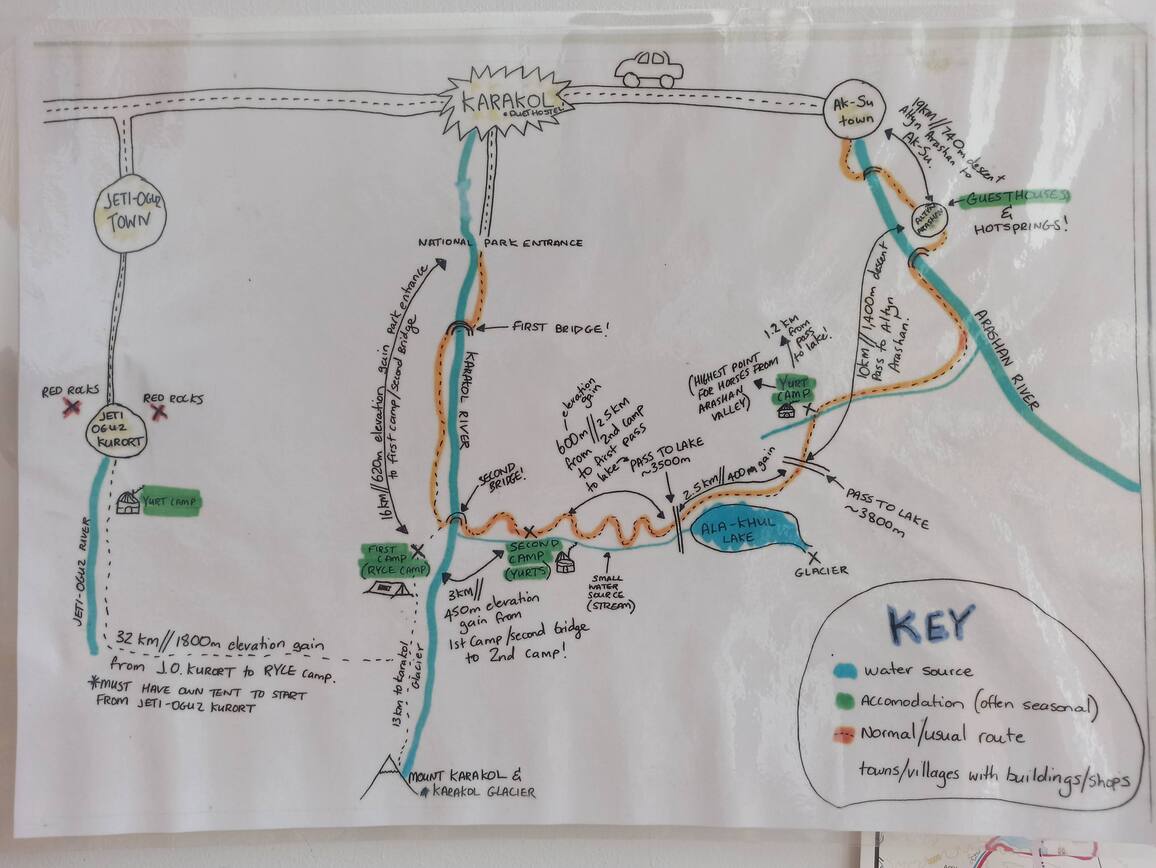 KARAKOL
Ak-Su
town
19km//740m descent
Altyn Arashan to
Ak-Su.
JETI-OGUZ
TOWN
ALTYN
ARASHAN
GUESTHOUSES
&
HOTSPRINGS!
NATIONAL PARK ENTRANCE
16km//620m elevation gain park entrance
to first camp/second Bridge
FIRST BRIDGE!
KARAKOL RIVER
10km//1,400m descent
Pass to Altyn
Arashan!
ARASHAN RIVER
1.2km
from
pass
to lake!
(HIGHEST POINT
FOR HORSES FROM
ARASHAN
VALLEY)
YURT
CAMP
RED ROCKS
RED ROCKS
JETI
OGUZ
KURORT
YURT CAMP
JETI-OGUZ RIVER
elevation
gain
600m//2.5km
from 2nd camp
to first pass
to lake
PASS TO LAKE
~3500m
2.5km//400m gain
SECOND
BRIDGE!
PASS TO LAKE
~3800m
ALA-KHUL
LAKE
GLACIER
FIRST
CAMP
(RYCE CAMP)
SECOND
CAMP
(YURTS)
SMALL
WATER
SOURCE
(STREAM)
3km//
450m elevation
gain from
1st Camp/second bridge
to 2nd camp!
32 km//1800m elevation gain
from J.O. KURORT to RYCE camp.
*MUST HAVE OWN TENT TO START
FROM JETI-OGUZ KURORT
13km to karakol
Glacier
MOUNT KARAKOL &
KARAKOL GLACIER
KEY
water source
Accomodation (often seasonal)
Normal/usual route
towns/villages with buildings/shops